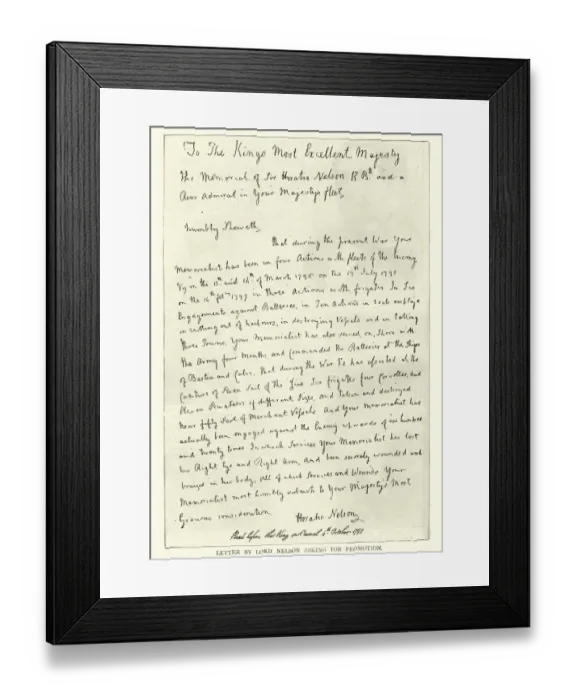 To The Kings Most Excellent Majesty
The Memorial of Sir Horatio Nelson K B and a
Rear Admiral in Your Majestys fleet,
Humbly Sheweth,
That during the present War Your
Memorialist has been in four Actions with fleets of the Enemy
Vz on the 13th and 14th of March 1795 on the 13th July 1795
on the 14th feb 1797 in three Actions with frigates In Six
Engagements against Batteries, in Ten Actions in boats employed
in cutting out of harbours, in destroying Vessels and in taking
three Towns, Your Memorialist has also served on Shore with
the Army four Months and Commanded the Batteries at the Sieges
of Bastia and Calvi, that during the War he has assisted at the
Capture of Seven Sail of the Line Six frigates four Corvettes, and
Eleven Privateers of different Sizes, and Taken and destroyed
near fifty Sail of Merchant Vessels. And Your Memorialist has
actually been engaged against the Enemy upwards of one hundred
and Twenty times In which Services Your Memorialist has lost
his Right Eye and Right Arm, And been severely wounded and
bruised in his body, All of which Services and Wounds Your
Memorialist most humbly submits to Your Majestys Most
Gracious consideration
Horatio Nelson
the King October
LETTER BY LORD NELSON ASKING FOR PROMOTION.